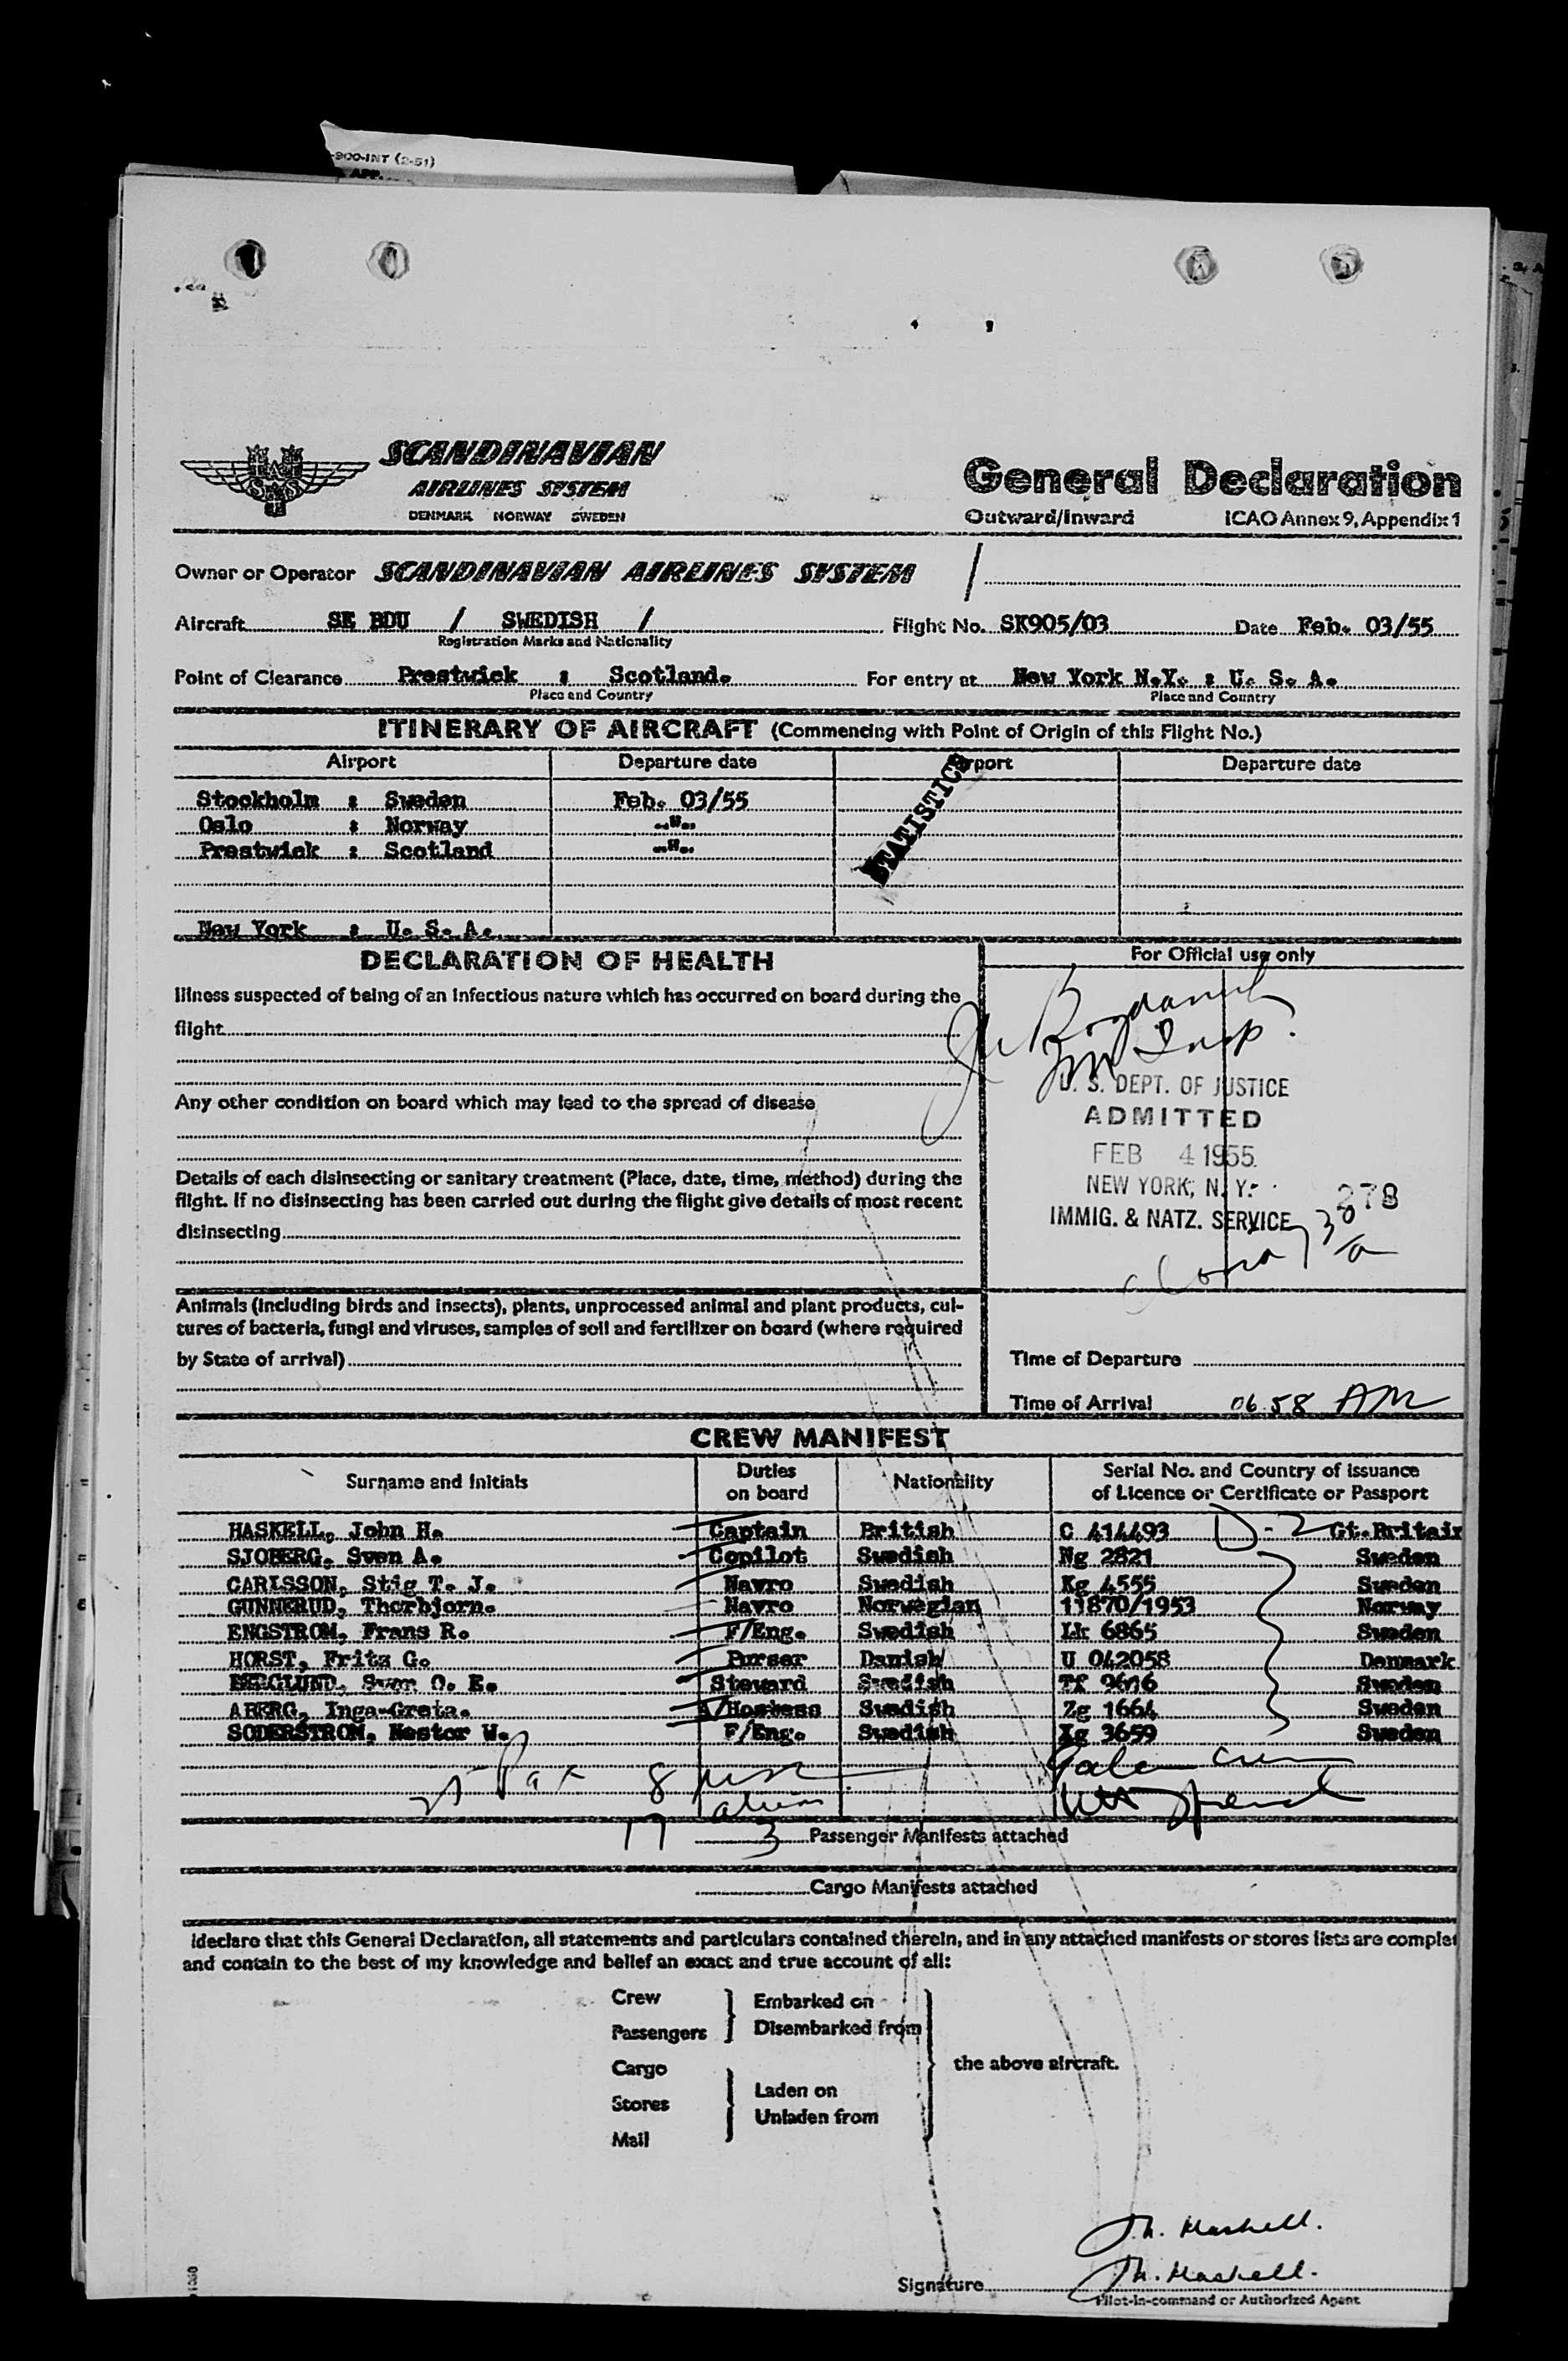 -900-INT (2-51)
APP.
SCANDINAVIAN
AIRLINES SYSTEM
DENMARK NORWAY SWEDEN
General Declaration
Outward/Inward ICAO Annex 9, Appendix 1
Owner or Operator SCANDINAVIAN AIRLINES SYSTEM /
Aircraft SE BDU / SWEDISH / Flight No. SK905/03 Date Feb. 03/55
Registration Marks and Nationality
Point of Clearance Prestwick : Scotland. For entry at New York N.Y. : U. S. A.
Place and Country Place and Country
ITINERARY OF AIRCRAFT (Commencing with Point of Origin of this Flight No.)
Airport Departure date Airport Departure date
STATISTICS
Stockholm : Sweden Feb. 03/55
Oslo : Norway -"-
Prestwick : Scotland -"-
New York : U. S. A.
DECLARATION OF HEALTH
Illness suspected of being of an infectious nature which has occurred on board during the
flight
Any other condition on board which may lead to the spread of disease
Details of each disinsecting or sanitary treatment (Place, date, time, method) during the
flight. If no disinsecting has been carried out during the flight give details of most recent
disinsecting
Animals (including birds and insects), plants, unprocessed animal and plant products, cul-
tures of bacteria, fungi and viruses, samples of soil and fertilizer on board (where required
by State of arrival)
For Official use only
Insp.
U. S. DEPT. OF JUSTICE
ADMITTED
FEB 4 1955
NEW YORK, N. Y.
278
IMMIG. & NATZ. SERVICE
Time of Departure
Time of Arrival 06 58 AM
CREW MANIFEST
Surname and Initials Duties on board Nationality Serial No. and Country of issuance of Licence or Certificate or Passport
HASKELL, John H. Captain British C 414493 D-2 Gt.Britain
SJOBERG, Sven A. Copilot Swedish Ng 2821 Sweden
CARLSSON, Stig T. J. Navro Swedish Kg 4555 Sweden
GUNNERUD, Thorbjorn. Navro Norwegian 11870/1953 Norway
ENGSTROM, Frans R. F/Eng. Swedish Lk 6865 Sweden
HORST, Fritz G. Purser Danish U 042058 Denmark
BERGLUND, Sven O. E. Steward Swedish Tf 9616 Sweden
ABERG, Inga-Greta. A/Hostess Swedish Zg 1664 Sweden
SODERSTROM, Nestor W. F/Eng. Swedish Xg 3659 Sweden
Pax 8
17
3 Passenger Manifests attached
Cargo Manifests attached
I declare that this General Declaration, all statements and particulars contained therein, and in any attached manifests or stores lists are complet
and contain to the best of my knowledge and belief an exact and true account of all:
Crew
Passengers
Embarked on
Disembarked from
Cargo
Stores
Mail
Laden on
Unladen from
the above aircraft.
Jh. Haskell.
Signature Jh. Haskell.
Pilot-in-command or Authorized Agent